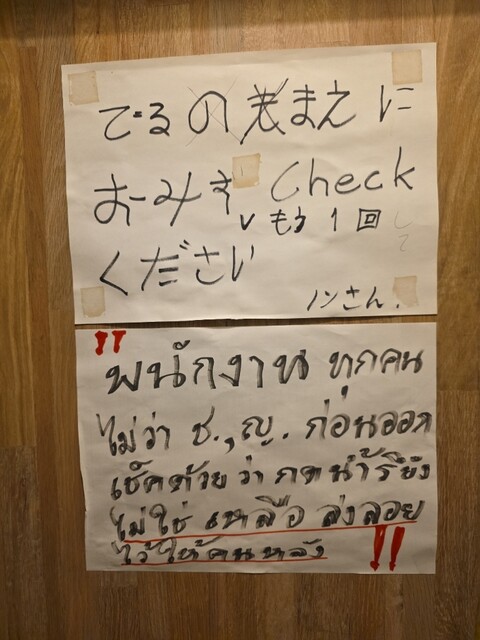 でるのまえに
おーみず Check
もう1回して
ください
ノンさん.
"พนักงาน ทุกคน
ไม่ว่า ช., ญ. ก่อนออก
เช็คด้วย ว่า กดน้ำรึยัง
ไม่ใช่ เหลือ ส่งลอย
ไว้ให้คนหลัง"